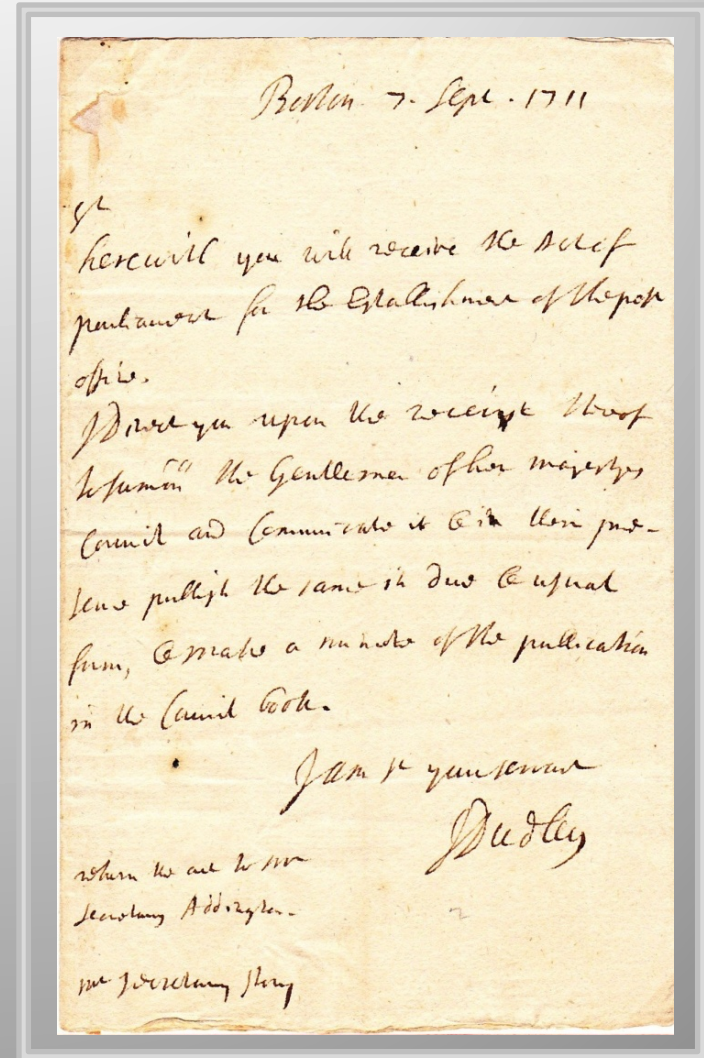 Boston 7. Sept. 1711
Sr
herewith you will receive the Act of
parliament for the Establishment of the post
office.
I Direct you upon the receipt thereof
to sumōn the Gentlemen of her majestys
Council and Communicate it & in their pre-
sence publish the same in due & usual
form, & make a minute of the publication
in the Council book.
I am Sr your servant
J Dudley
return the act to mr
Secretary Addington.
mr Secretary Story